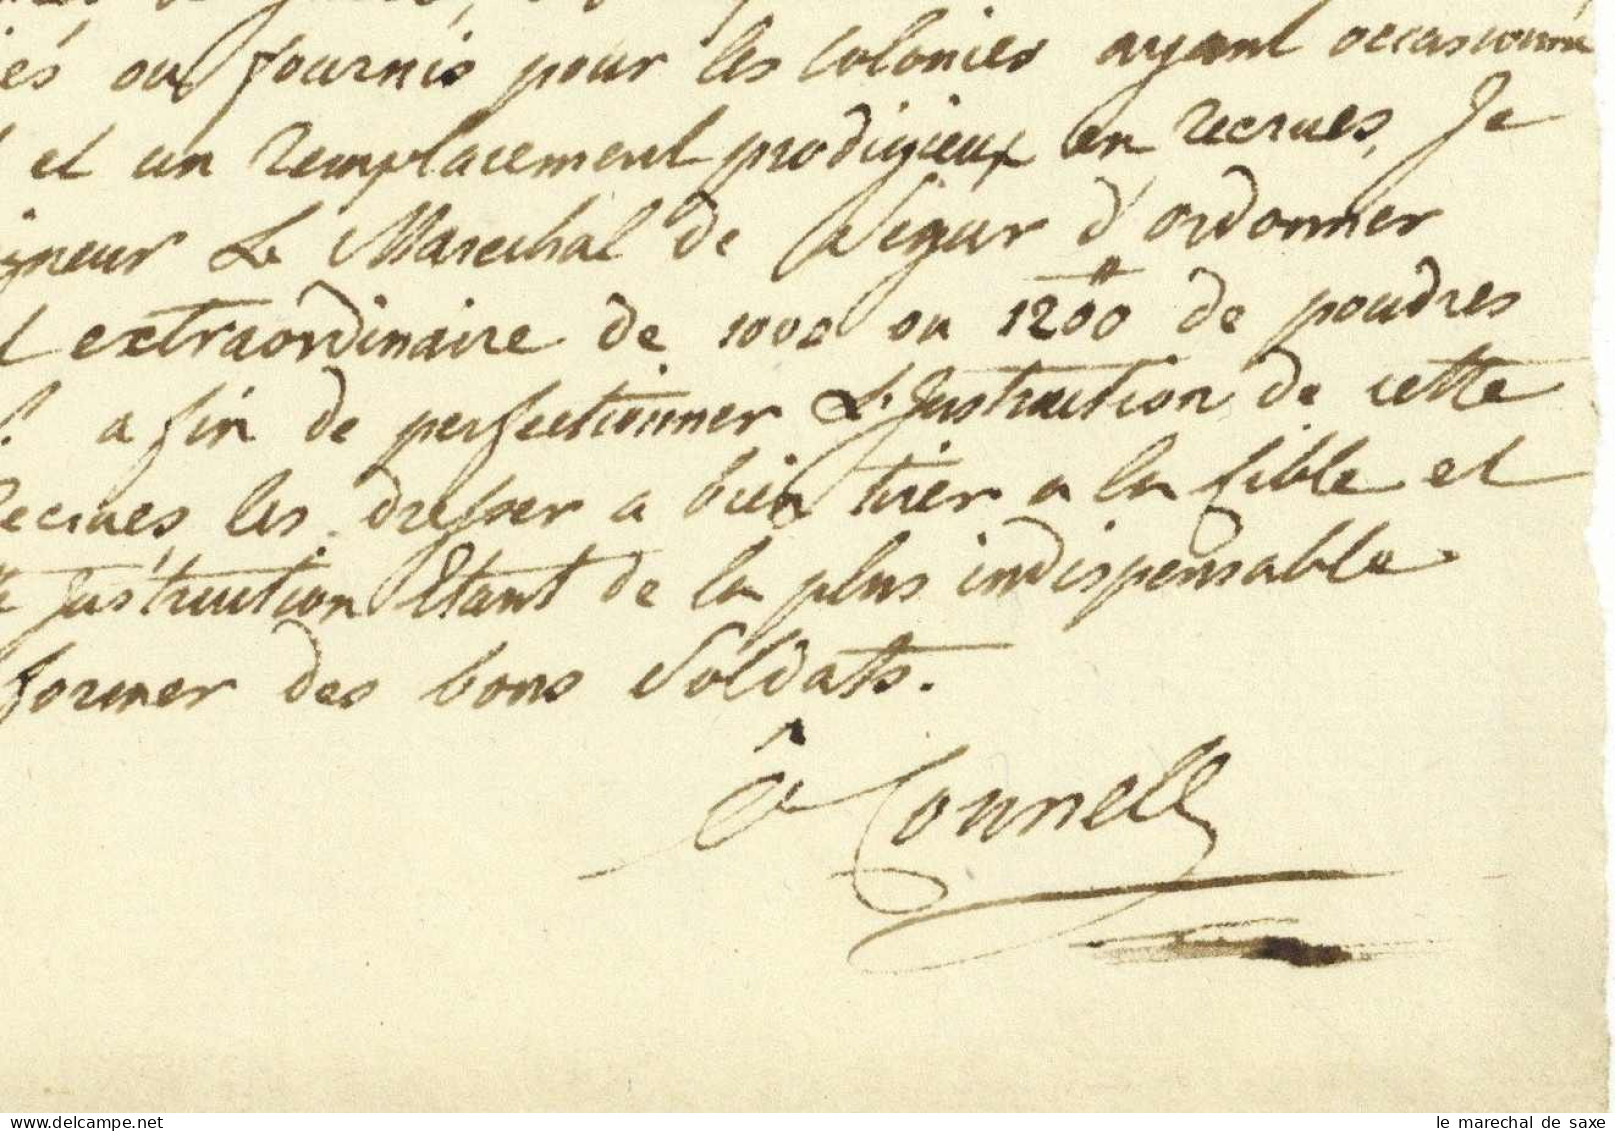 és ou fournis pour les Colonies ayant occasionné
et un remplacement prodigieux en recrues, Je
igneur Le Marechal de Ségur d'ordonner
extraordinaire de 1000 ou 1200 # de poudres
a fin de perfectionner L'Instruction de cette
Recrues les dresser a bien tirer a la Cible et
Instruction Etant de la plus indispensable
former des bons Soldats.
O Connell
le marechal de saxe